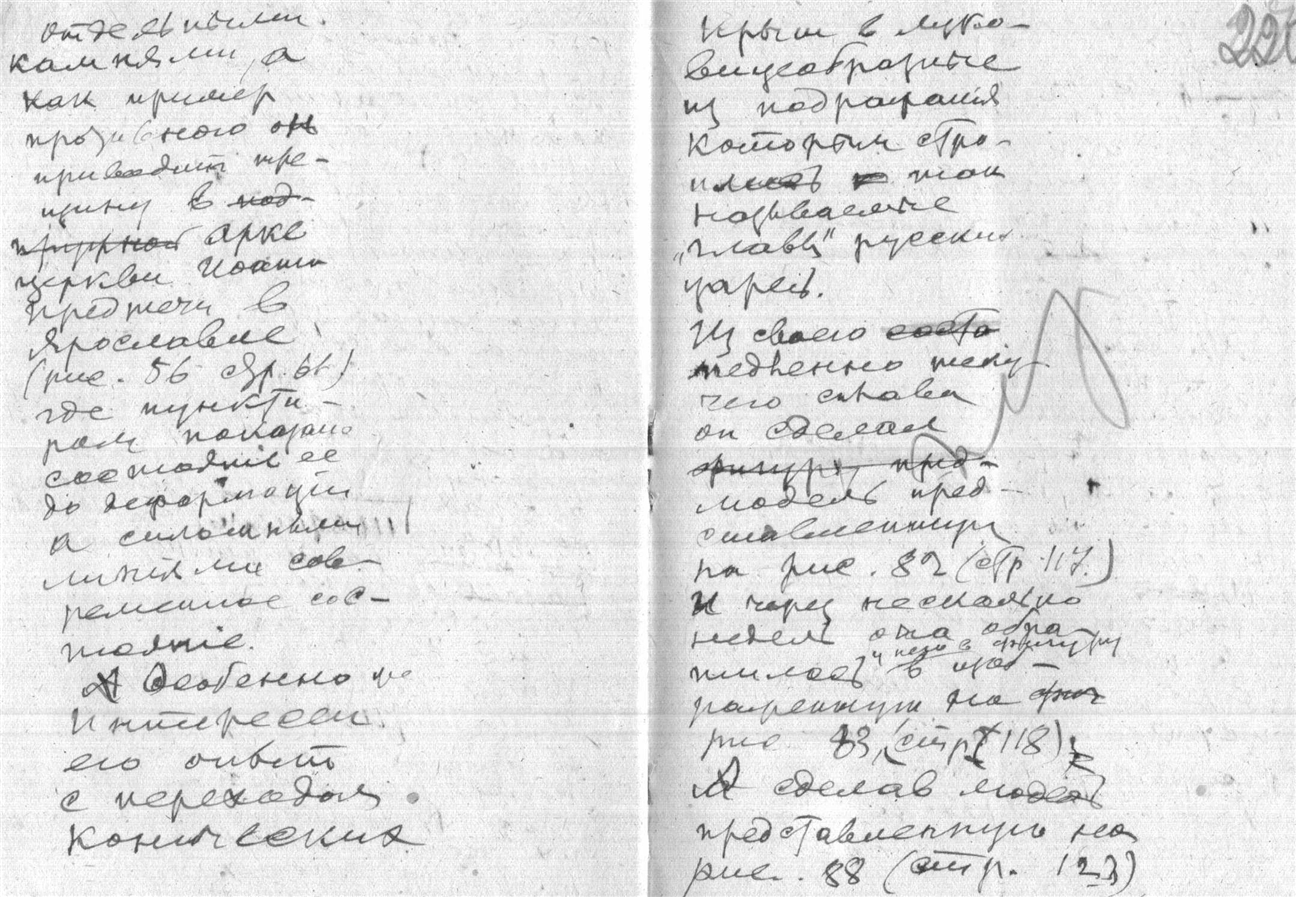 отдельными
камнями, а
как пример
противного он
приводит тре-
щину в под-
пружной арке
церкви Иоанна
Предтечи в
Ярославле
(рис. 56 стр. 66)
где пункти-
ром показано
состояніе ее
до деформаціи
а сплошными
линіями сов-
ременное сос-
тояніе.
А Особенно же
интересен
его опыт
с переходом
конических
крыш в луко-
вицеобразные
из подражанія
которым стро-
ились так
называемые
„главы" русских
царей.
Из своего соста
медленно теку-
чего сплава
он сделал
фигуру пред-
модель пред-
ставленную
на рис. 82 (стр. 117.)
И через несколько
недель она обра-
тилась в изоб-
и пело в фигуру
раженную на фиг
рис 83, (стр. 118);
А сделав модель
представленную на
рис. 88 (стр. 123)